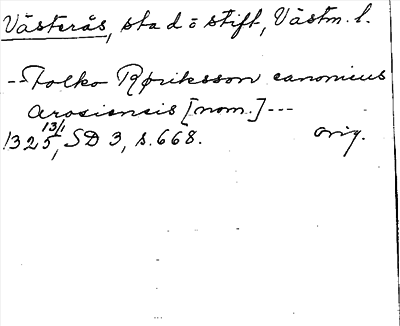 Västerås, stad ö stift, Västm. l.
--Folko Røriksson canonicus
arosiensis [nom.]---
1325 13/1, SD 3, s. 668. orig.